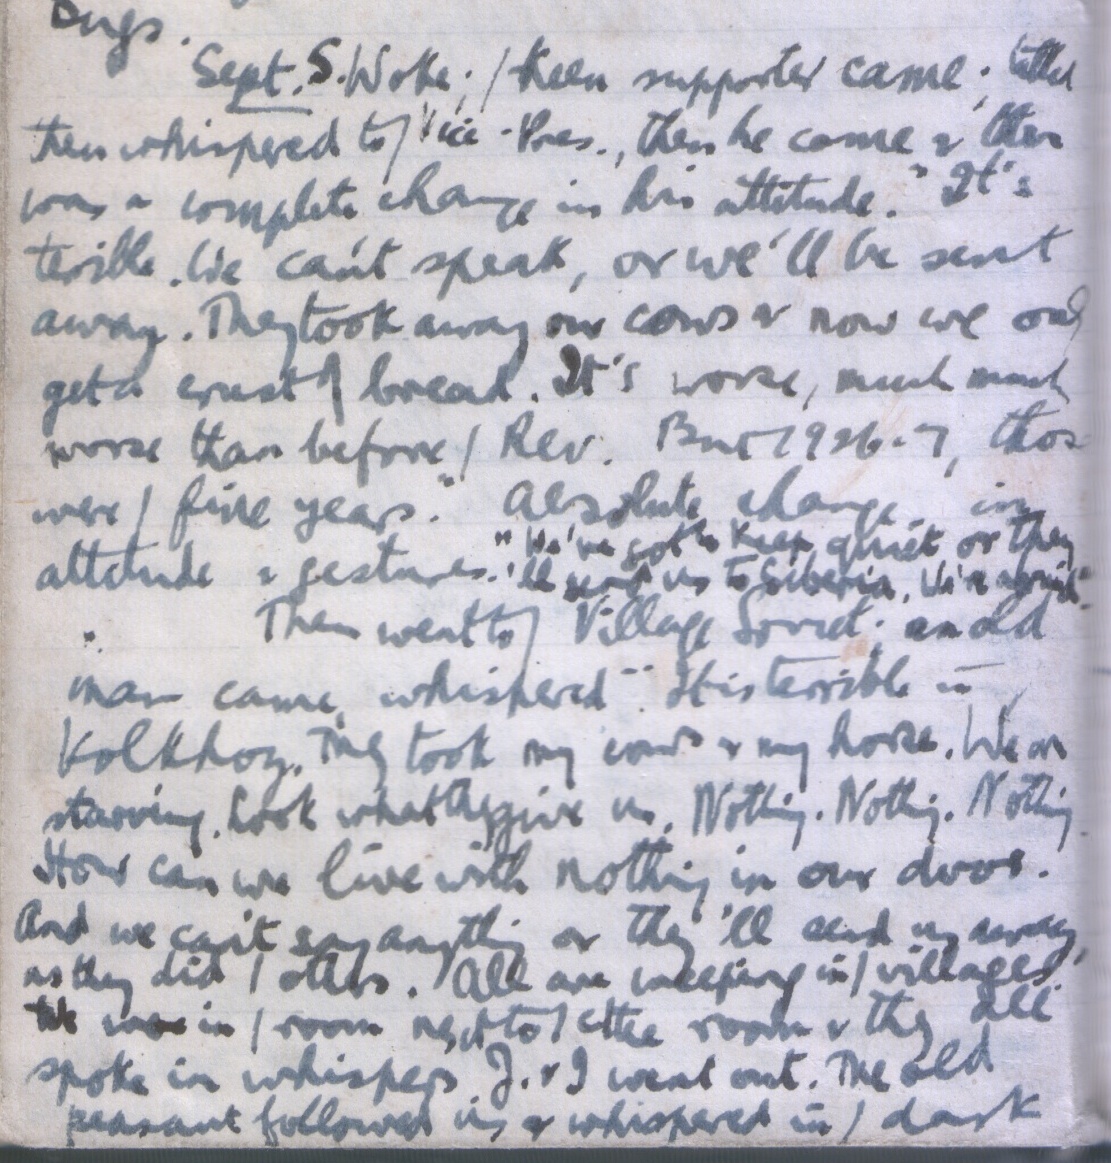 Bugs.
Sept. 5. Woke; / keen supporter came; talked
then whispered to / Vice-Pres., then he came & there
was a complete change in his attitude. "It's
terrible. We can't speak, or we'll be sent
away. They took away our cows & now we only
get a crust of bread. It's worse, much much
worse than before / Rev. But 1926-7, those
were / fine years." Absolute change in
attitude & gestures. "We've got to keep quiet or they
'll send us to Siberia. We're afraid"
Then went to / Village Soviet. An old
man came, whispered "It is terrible in
Kolkhoz. They took my cows & my horse. We are
starving. Look what they give us. Nothing. Nothing. Nothing.
How can we live with nothing in our dvor.
And we can't say anything or they'll send us away,
as they did / others. All are weeping in / villages"
We were in / room next to / ctte room & they all
spoke in whispers. J. & I went out. The old
peasant followed us & whispered in / dark